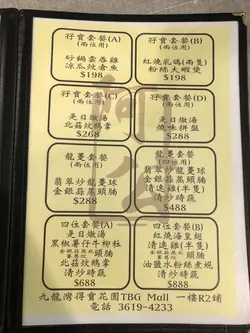 孖寶套餐(A)
(兩位用)
砂鍋雲吞雞
涼瓜炆斑魚
$198
孖寶套餐(B)
(兩位用)
紅燒乳鴿(兩隻)
粉絲大蝦煲
$198
孖寶套餐(C)
(兩位用)
是日燉湯
北菇炆鵝掌
$268
孖寶套餐(D)
(兩位用)
是日燉湯
燒味拼盤
$288
龍躉套餐
(兩位用)
翡翠炒龍躉球
金銀蒜蒸頭腩
$288
龍躉套餐
金銀蒜蒸頭腩
清遠雞(半隻)
清炒時蔬
$488
四位套餐(A)
是日燉湯
黑椒薯仔牛柳粒
金銀蒜蒸頭腩
北菇炆鵝掌
清炒時蔬
$688
四位套餐(B)
紅燒海皇羹
清遠雞(半隻)
油鹽水粉絲煮蜆
清炒時蔬
$888
九龍灣得寶花園TBG Mall 一樓R2鋪
電話 3619-4233